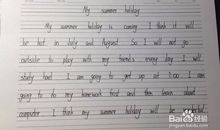 My summer holiday
My summer holiday is coming I think it will
be hot in July and August. So I will not go
outside to play with my friends every day I will
study hard I am going to get up at 7:00 I am
going to do my homework first and then learn about
computer I think my summer holiday will be
Baidu 经验
jingyan.baidu.com